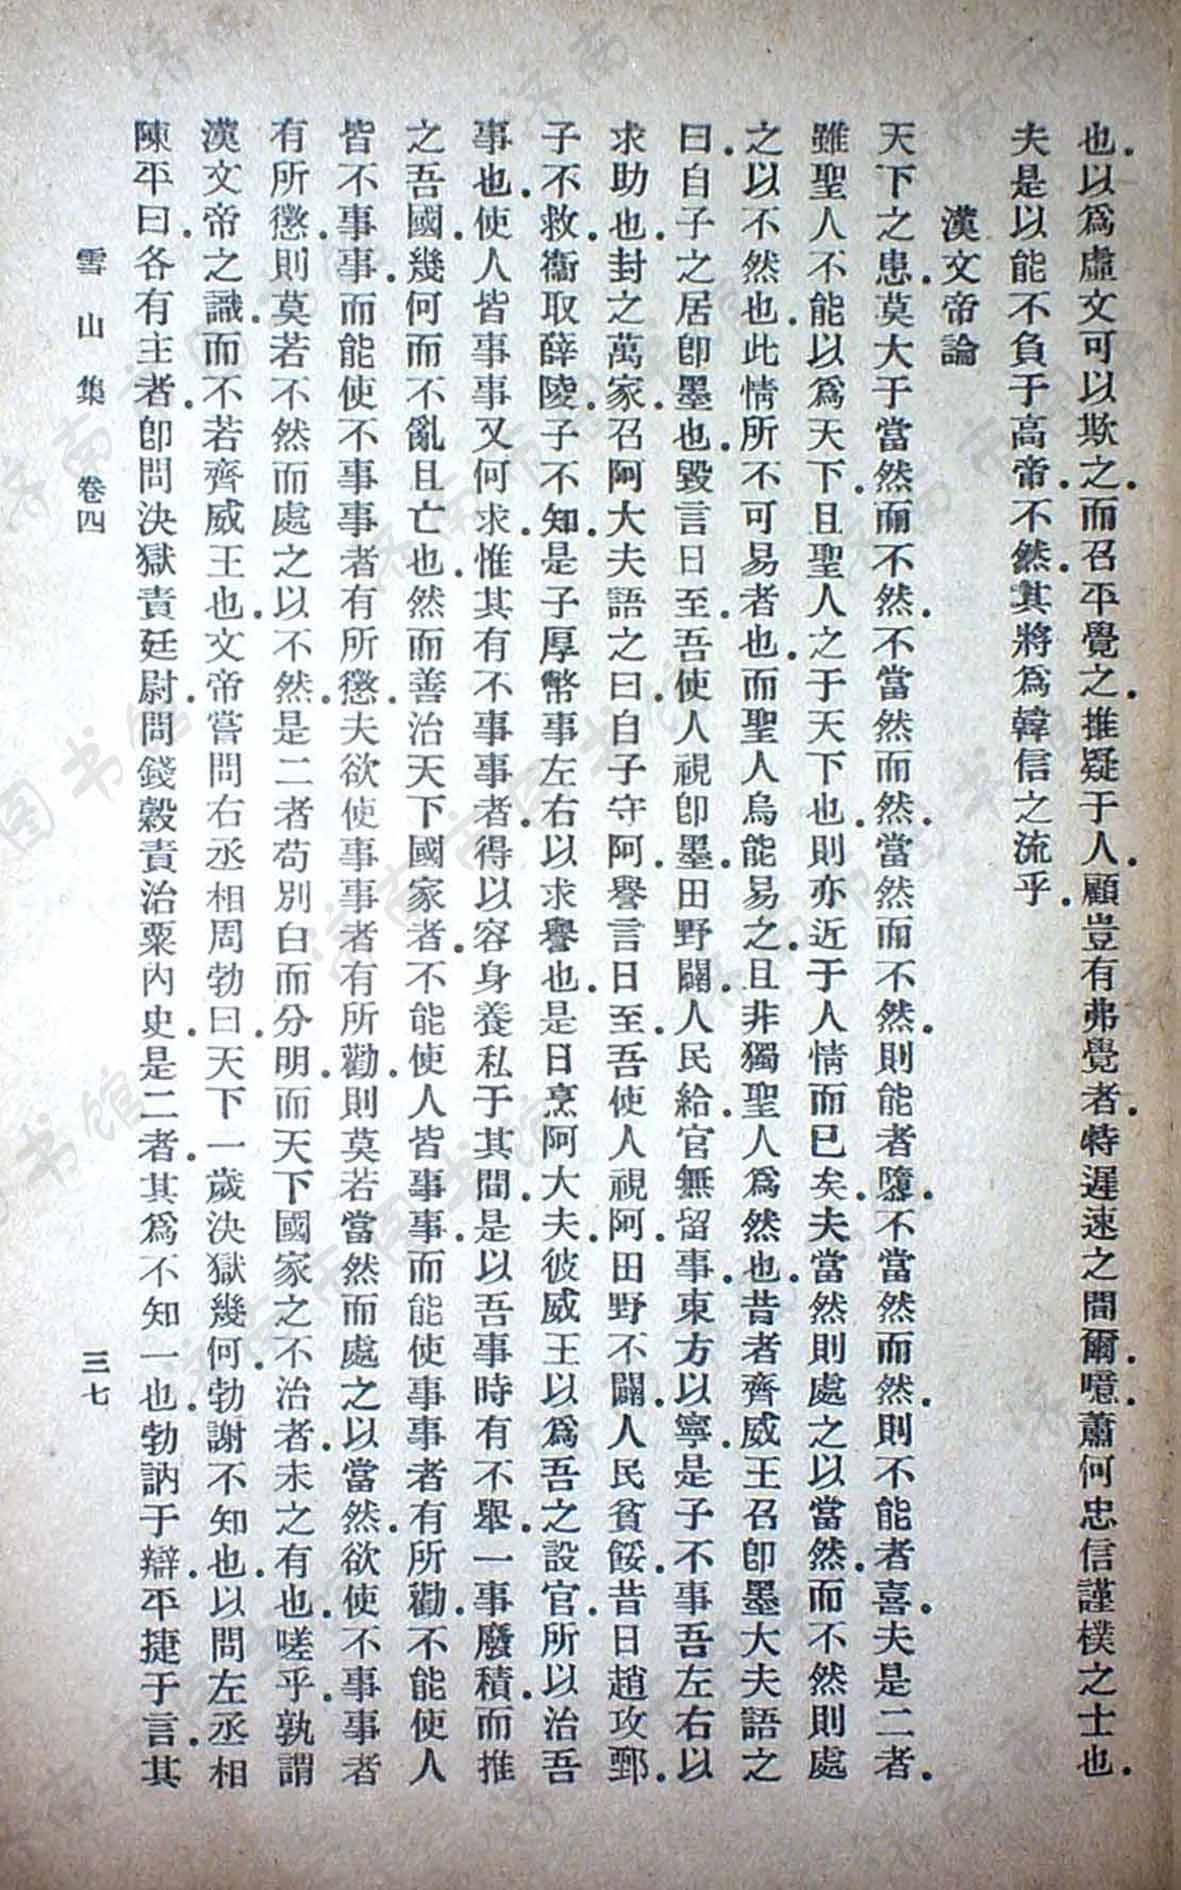 也。以爲虛文可以欺之。而召平覺之。推疑于人。顧豈有弗覺者。特遲速之間爾。噫。蕭何忠信謹樸之士也。
夫是以能不負于高帝。不然。其將爲韓信之流乎。
漢文帝論
天下之患。莫大于當然而不然。不當然而然。當然而不然。則能者隳。不當然而然。則不能者喜。夫是二者。
雖聖人不能以爲天下。且聖人之于天下也。則亦近于人情而已矣。夫當然則處之以當然。而不然則處
之以不然也。此情所不可易者也。而聖人烏能易之。且非獨聖人爲然也。昔者齊威王召卽墨大夫語之
曰。自子之居卽墨也。毀言日至。吾使人視卽墨。田野闢。人民給。官無留事。東方以寧。是子不事吾左右以
求助也。封之萬家。召阿大夫語之曰。自子守阿。譽言日至。吾使人視阿。田野不闢。人民貧餒。昔日趙攻鄄。
子不救。衞取薛陵。子不知。是子厚幣事左右以求譽也。是日烹阿大夫。彼威王以爲吾之設官。所以治吾
事也。使人皆事事。又何求。惟其有不事事者。得以容身養私于其間。是以吾事時有不舉。一事廢積。而推
之吾國。幾何而不亂且亡也。然而善治天下國家者。不能使人皆事事。而能使事事者有所勸。不能使人
皆不事事。而能使不事事者有所懲。夫欲使事事者有所勸。則莫若當然而處之以當然。欲使不事事者
有所懲。則莫若不然而處之以不然。是二者苟別白而分明。而天下國家之不治者。未之有也。嗟乎。孰謂
漢文帝之識。而不若齊威王也。文帝嘗問右丞相周勃曰。天下一歲決獄幾何。勃謝不知也。以問左丞相
陳平曰。各有主者。卽問決獄責廷尉。問錢穀責治粟內史。是二者。其爲不知一也。勃訥于辯。平捷于言。其
雪山集 卷四 三七
济南市图书馆